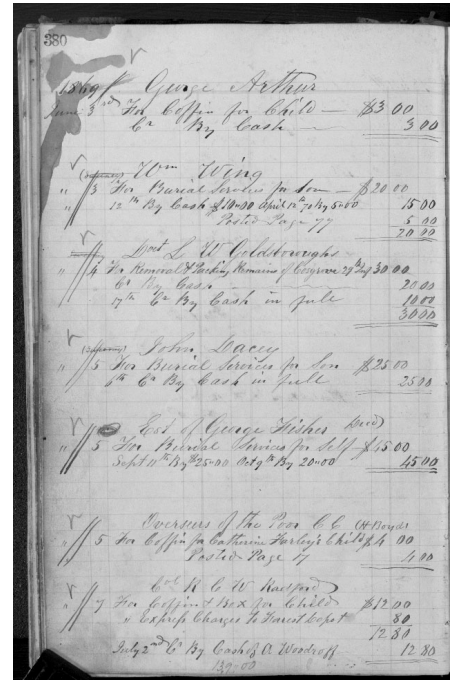 380
1869 George Arthur
June 3rd For Coffin for Child — $3 00
Cr By Cash — 3 00
Wm Wing
" 3 For Burial Services for Son — $20 00
" 12th By Cash $10=00 April 12th 70 By 5=00 15 00
Posted Page 77 5 00
20 00
Doct L W Goldsborough
" 4 For Removal & Packing Remains of 30 00
Cr By Cash 20 00
17th Cr By Cash in full 10 00
30 00
John Lacey
" 5 For Burial Services for Son $25 00
6th Cr By Cash in full 25 00
Est of George Fisher Decd
" 5 For Burial Services for Self $45 00
Sept 11th By $25=00 Oct 9th By 20=00 45 00
Overseers of the Poor C C (H Boyd)
" 5 For Coffin for Catherine Farley's Child $4 00
Posted Page 17 4 00
Col R C W Radford
" 7 For Coffin & Box for Child $12 00
" Express Charges to Forest Depot 80
12 80
July 2nd Cr By Cash of A Woodroff 12 80
139=00